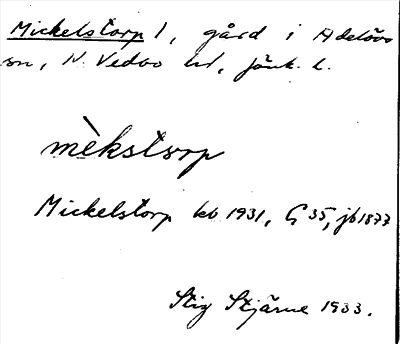 Mickelstorp 1, gård i Adelövs
sn, N. Vedbo hd, Jönk. l.
mèkstorp
Mickelstorp kb 1931, G 35, jb 1877
Stig Stjärne 1933.